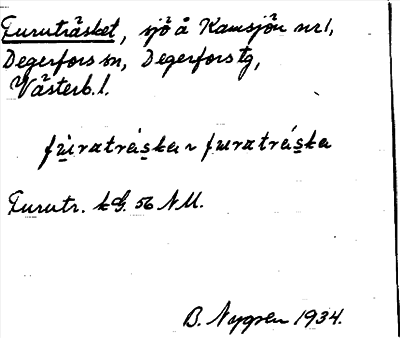 Furuträsket, sjö å Kamsjön nr 1,
Degerfors sn, Degerfors tg,
Västerb. l.
fúratráska ~ furatráska
Furutr. kG. 56 NU.
B. Nygren 1934.